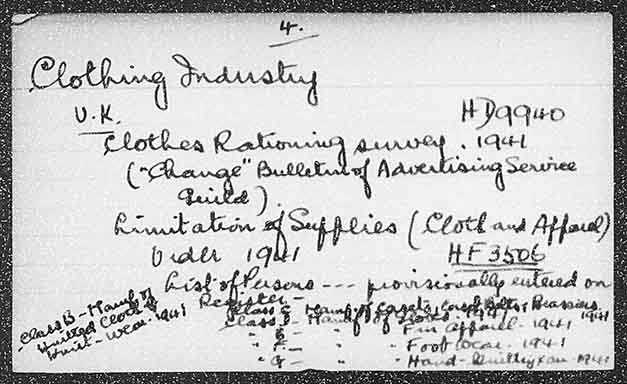 4.
Clothing Industry
U.K. HD9940
Clothes Rationing survey. 1941
("Change" Bulletin of Advertising Service
Guild).
Limitation of Supplies (Cloth and Apparel)
Order 1941 HF3506
List of Persons --- provisionally entered on
Register -
Class B - Manuf of
Knitted Cloth &
Knit-wear. 1941
Class C - Manuf of Corsets, Corset Belts, Brassiers 1941
Class D - Manuf of 1941
" E - " " Fur Apparel. 1941
" F - " " Footwear. 1941
" G - " " Hand- 1941